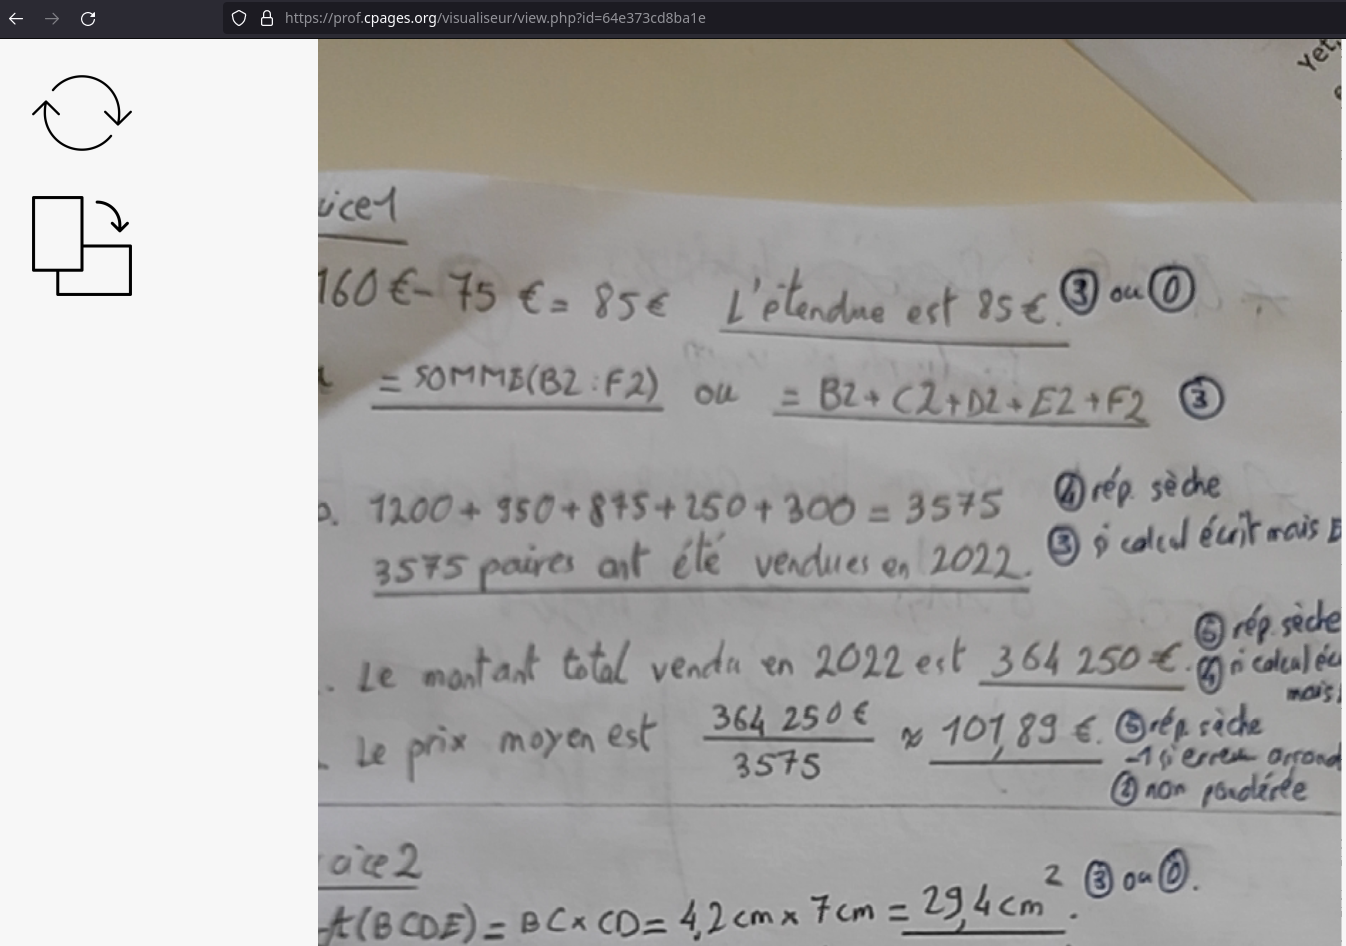 https://prof.cpages.org/visualiseur/view.php?id=64e373cd8ba1e
Yet,
ice1
160€ - 75 € = 85€ L'étendue est 85€. ③ ou ⓪
= SOMME(B2:F2) ou = B2+C2+D2+E2+F2 ③
1200 + 950 + 875 + 250 + 300 = 3575 ④ rép. sèche
3575 paires ont été vendues en 2022. ③ si calcul écrit mais
Le montant total vendu en 2022 est 364 250 €. ⑤ rép. sèche
④ si calcul éc
mais
Le prix moyen est 364 250 € / 3575 ≈ 101,89 €. ⑤ rép. sèche
-1 si erreur arrond
② non pondérée
cice2
A(BCDE) = BC × CD = 4,2 cm × 7 cm = 29,4 cm². ③ ou ⓪.